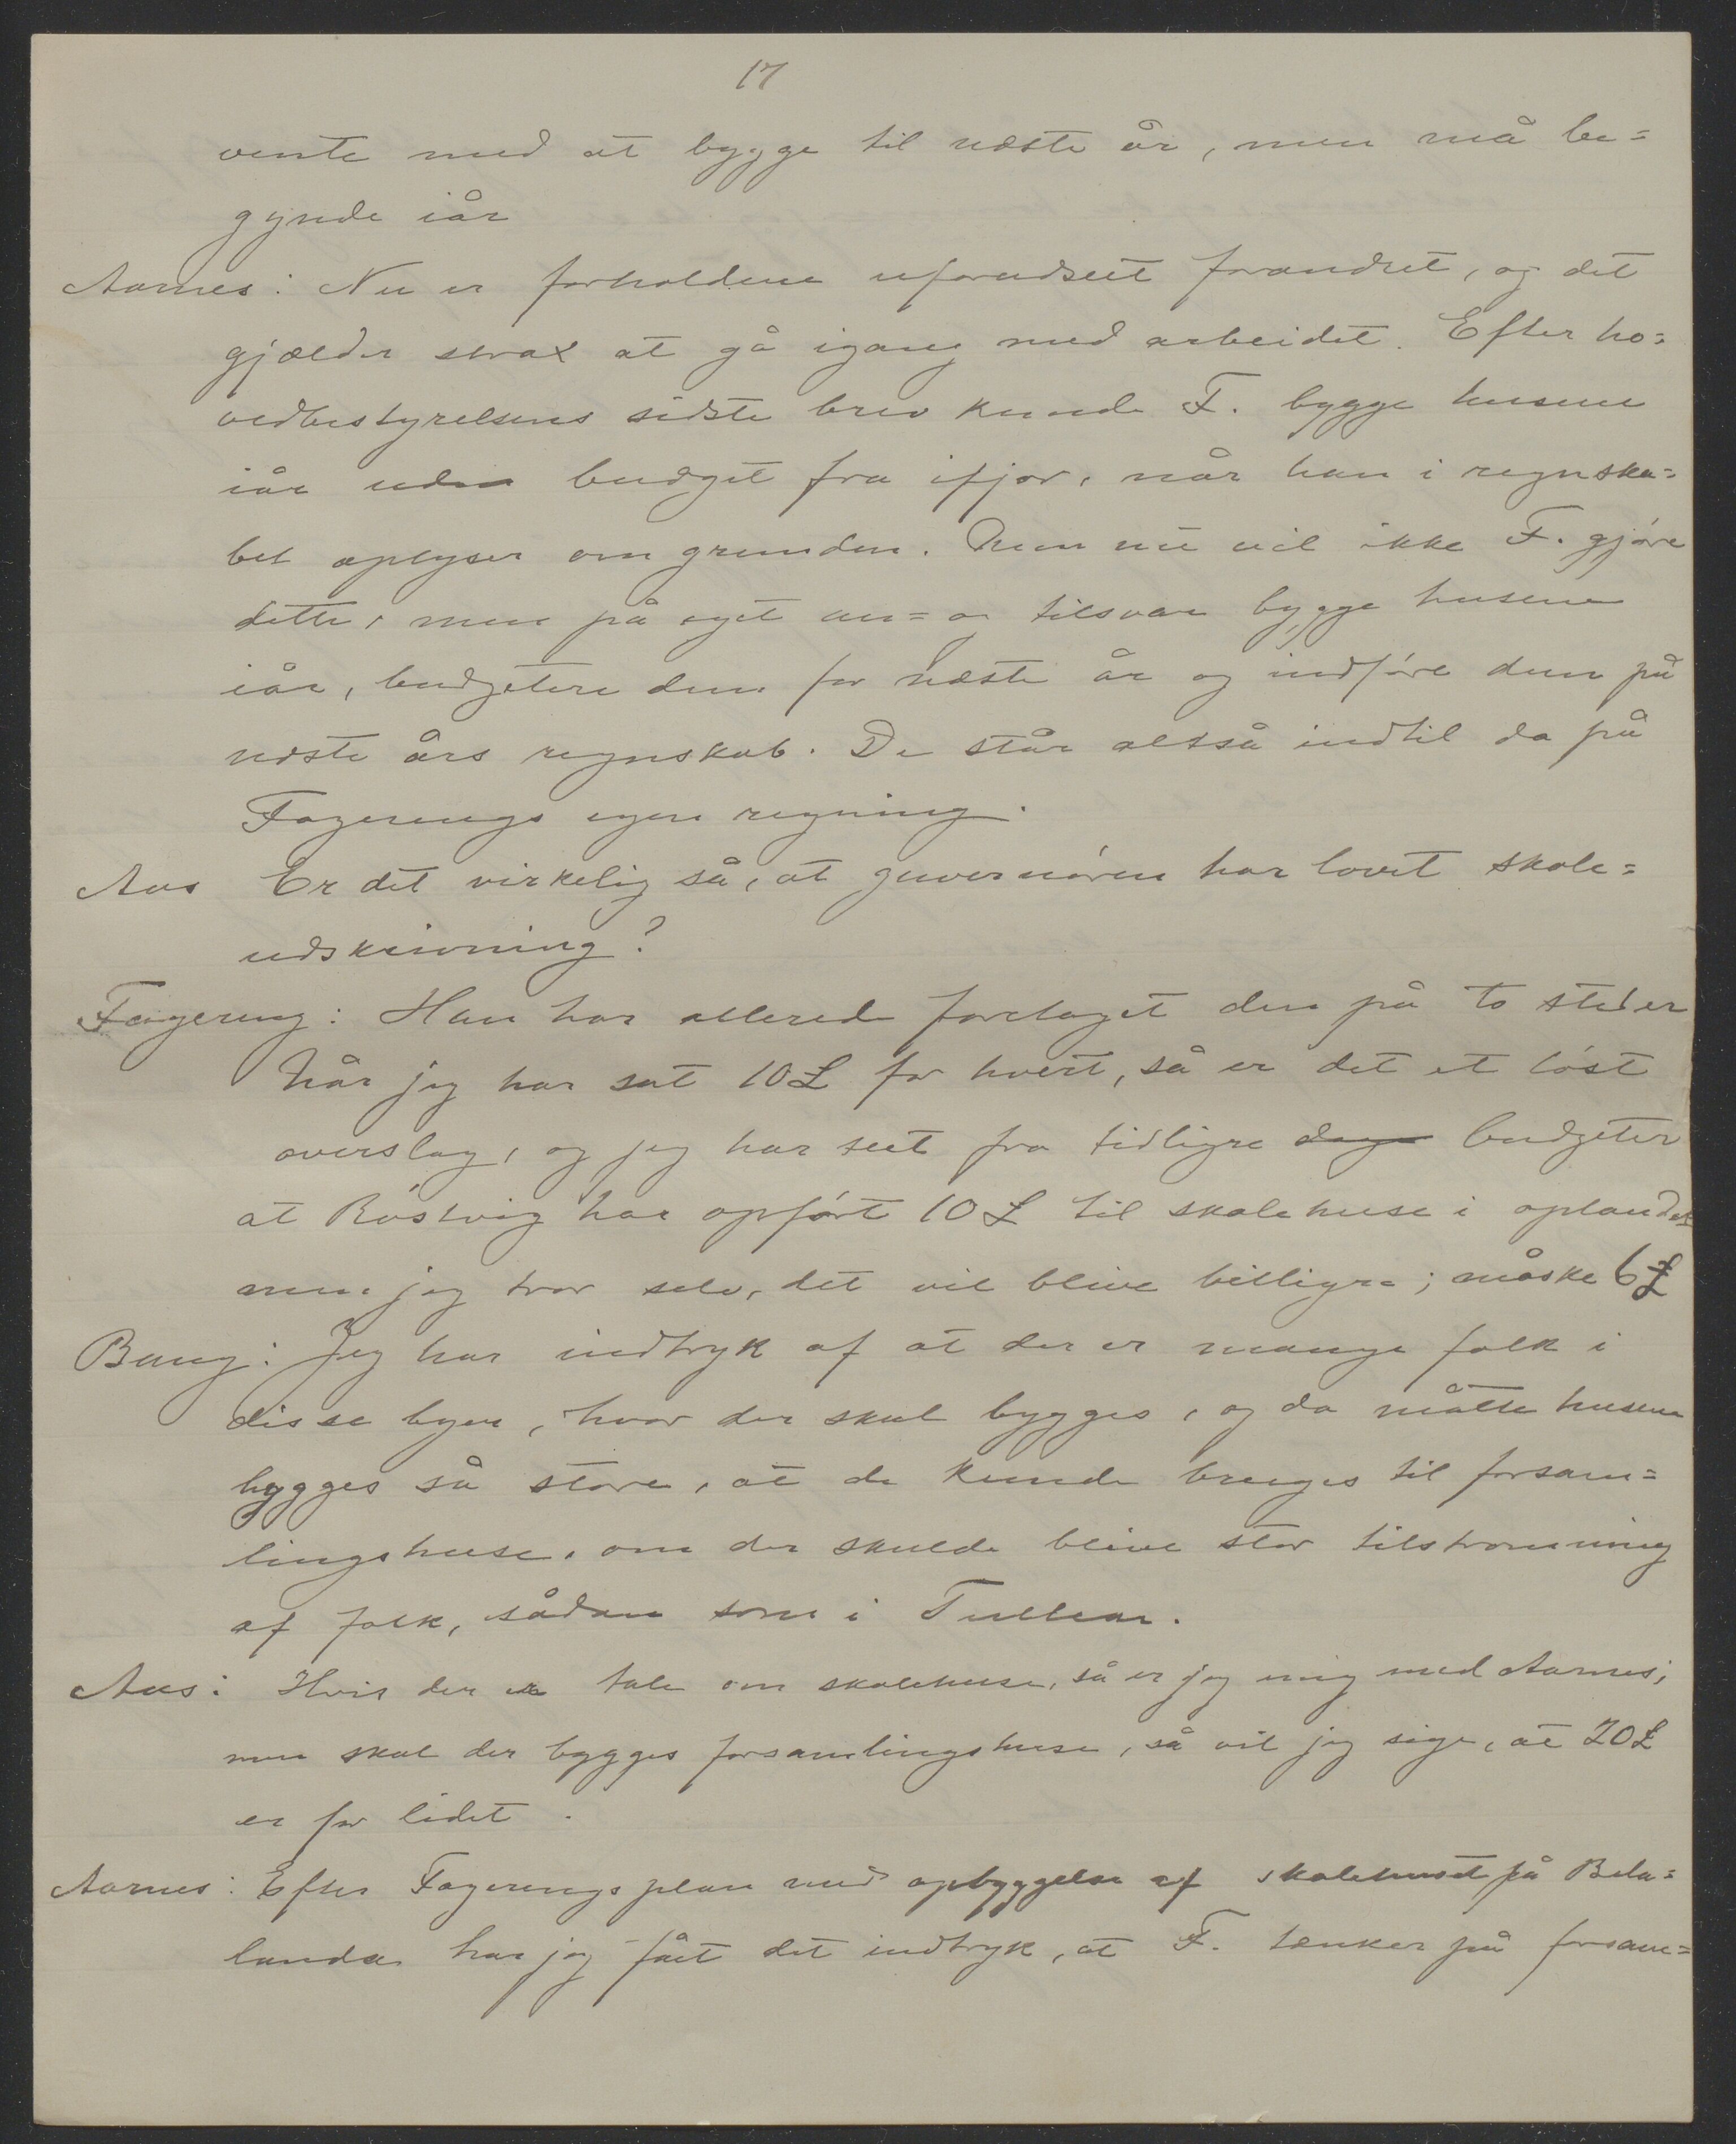 17
vente med at bygge til næste år, men må be=
gynde iår
Aarnes: Nu er forholdene uforudseet forandret, og det
gjælder strax at gå igang med arbeidet. Efter ho=
vedbestyrelsens sidste brev kunde F. bygge husene
iår uden budget fra ifjor, når han i regnska=
bet oplyser om grunden. Men nu vil ikke F. gjøre
dette, men på eget an= og tilsvar bygge husene
iår, budgetere dem for næste år og indføre dem på
næste års regnskab. De står altså indtil da på
Fagerengs egen regning.
Aas Er det virkelig så, at guvernøren har lovet skole=
udskrivning?
Fagereng: Han har allerede foretaget den på to steder
Når jeg har sat 10£ for hvert, så er det et løst
overslag, og jeg har seet fra tidligre dage budgeter
at Røstvig har opført 10£ til skolehuse i oplandet
men jeg tror selv, det vil blive billigre; måske 6£
Bang: Jeg har indtryk af at der er mange folk i
disse byer, hvor der skal bygges, og da måtte husene
bygges så store, at de kunde bruges til forsam=
lingshuse, om der skulde blive stor tilstrømning
af folk, sådan som i Tullear.
Aas: Hvis der er tale om skolehuse, så er jeg enig med Aarnes;
men skal der bygges forsamlingshuse, så vil jeg sige, at 20£
er for lidet.
Aarnes: Efter Fagerengs plan med opbyggelse af skolehuset på Bela=
landa har jeg fået det indtryk, at F. tænker på forsam=